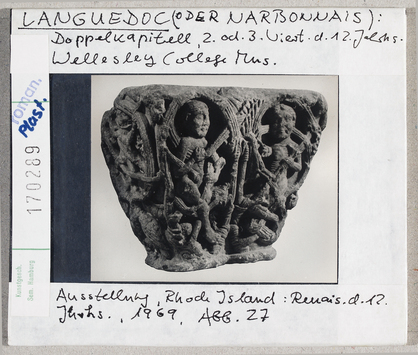 LANGUEDOC (ODER NARBONNAIS):
Doppelkapitell, 2. od. 3. Viert. d. 12. Jahrhs.
Wellesley College Mus.
roman.
Plast.
170289
Kunstgesch.
Sem. Hamburg
Ausstellung, Rhode Island: Renais. d. 12.
Jhrhs., 1969, ABB. 27